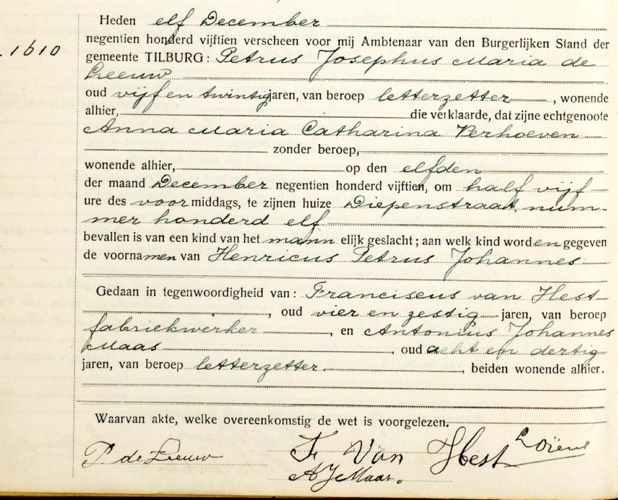 1610
Heden elf December
negentien honderd vijftien verscheen voor mij Ambtenaar van den Burgerlijken Stand der
gemeente TILBURG: Petrus Josephus Maria de
Leeuw
oud vijf en twintig jaren, van beroep letterzetter, wonende
alhier, die verklaarde, dat zijne echtgenoote
Anna Maria Catharina Verhoeven
zonder beroep,
wonende alhier, op den elfden
der maand December negentien honderd vijftien, om half vijf
ure des voormiddags, te zijnen huize Diepenstraat, num-
mer honderd elf
bevallen is van een kind van het mannelijk geslacht; aan welk kind worden gegeven
de voornamen van Henricus Petrus Johannes
Gedaan in tegenwoordigheid van: Franciscus van Hest
, oud vier en zestig jaren, van beroep
fabriekwerker, en Antonius Johannes
Maas, oud acht en dertig
jaren, van beroep letterzetter, beiden wonende alhier.
Waarvan akte, welke overeenkomstig de wet is voorgelezen.
P de Leeuw
Fr Van Hest
A J Maas.